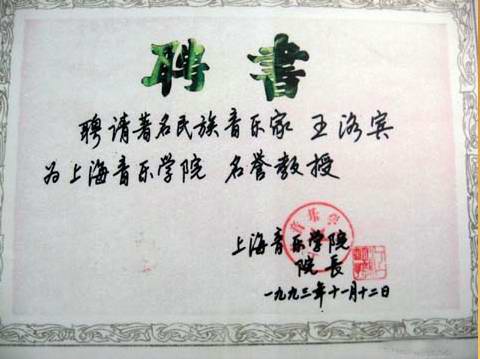 聘書
聘请著名民族音乐家 王洛宾
为上海音乐学院 名誉教授
上海音乐学院
院長
一九九三年十一月十二日